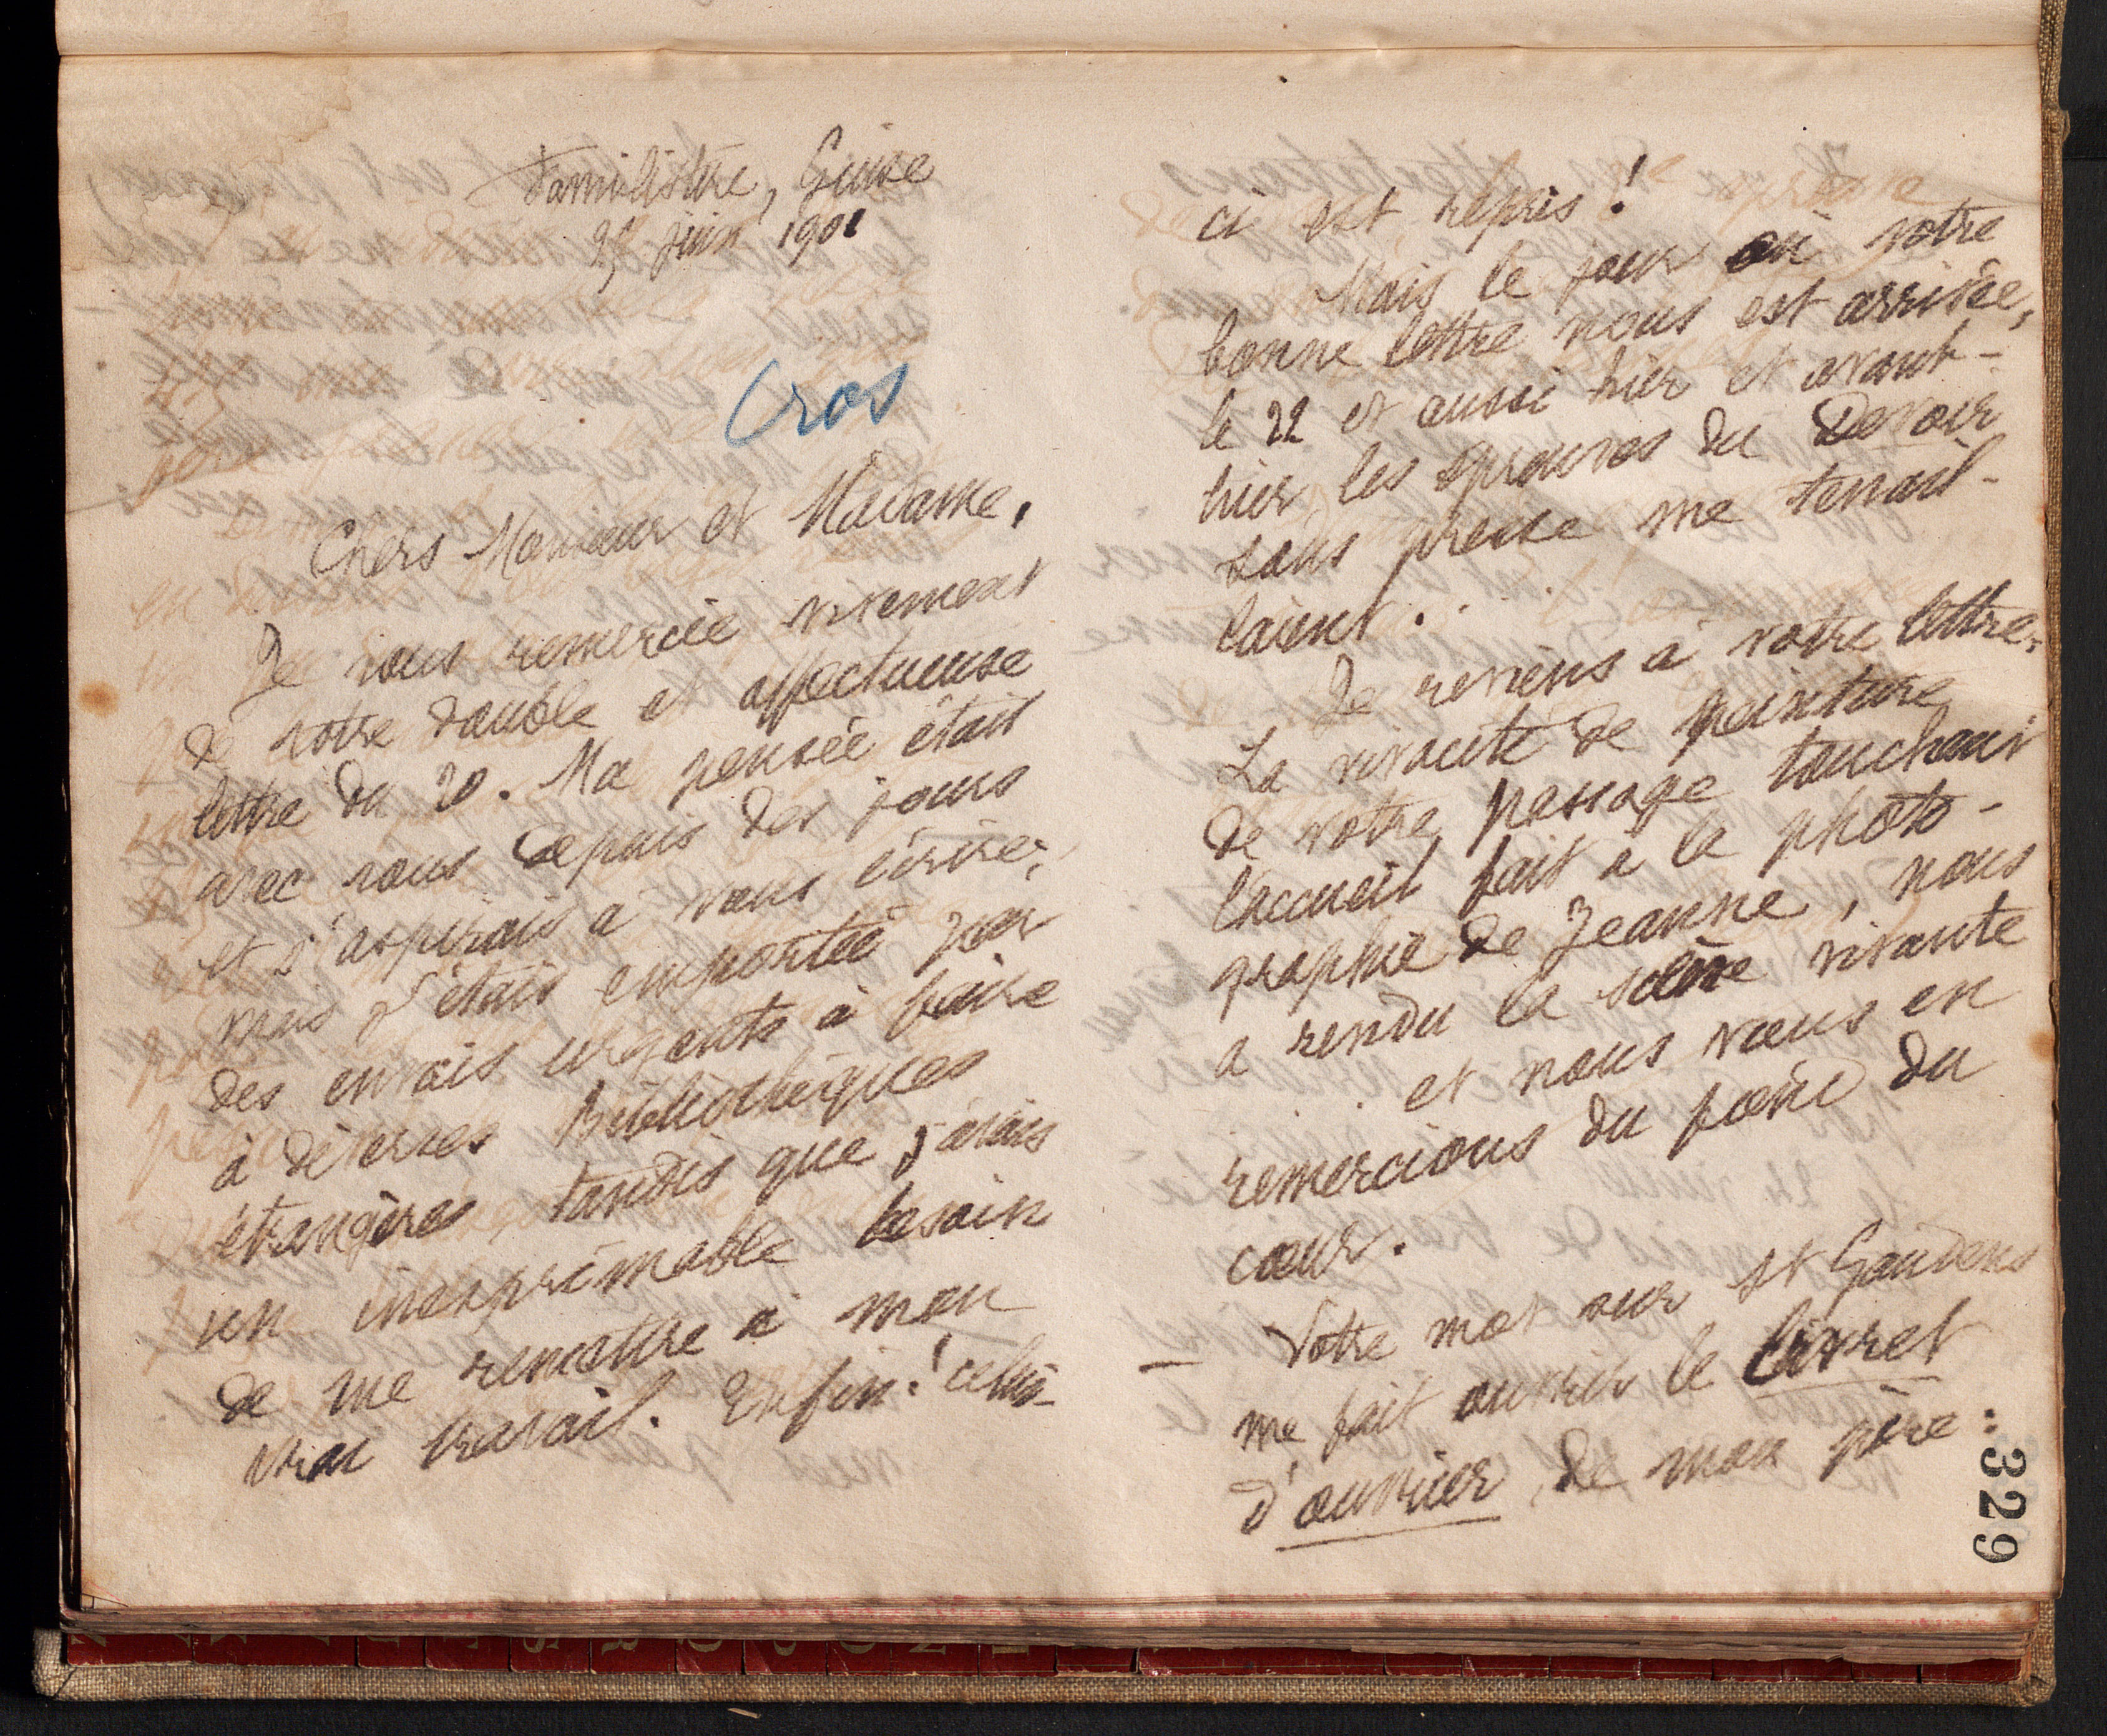 Familistère, Guise
juin 1901
Cros
Chers Monsieur et Madame,
Je vous remercie vivement
de votre double et affectueuse
lettre du 20. Ma pensée était
avec vous depuis des jours
et j'aspirais à vous écrire;
mais j'étais emportée par
des envois urgents à faire
à diverses Bibliothèques
étrangères, tandis que j'avais
un inexprimable besoin
de me remettre à mon
vrai travail. Enfin! celui-
ci est repris!
Mais le jour où votre
bonne lettre nous est arrivée,
le 22 et aussi hier et avant-
hier les épreuves du Devoir
sous presse me tenail-
laient.
Je reviens à votre lettre.
La vivante de peinture
de votre passage touchant
l'accueil fait à la photo-
graphie de Jeanne, nous
a rendu la scène vivante
et nous vous en
remercions du fond du
cœur.
— Votre mot sur St Gaudens
me fait ouvrir le livret
d'ouvrier de mon père:
329